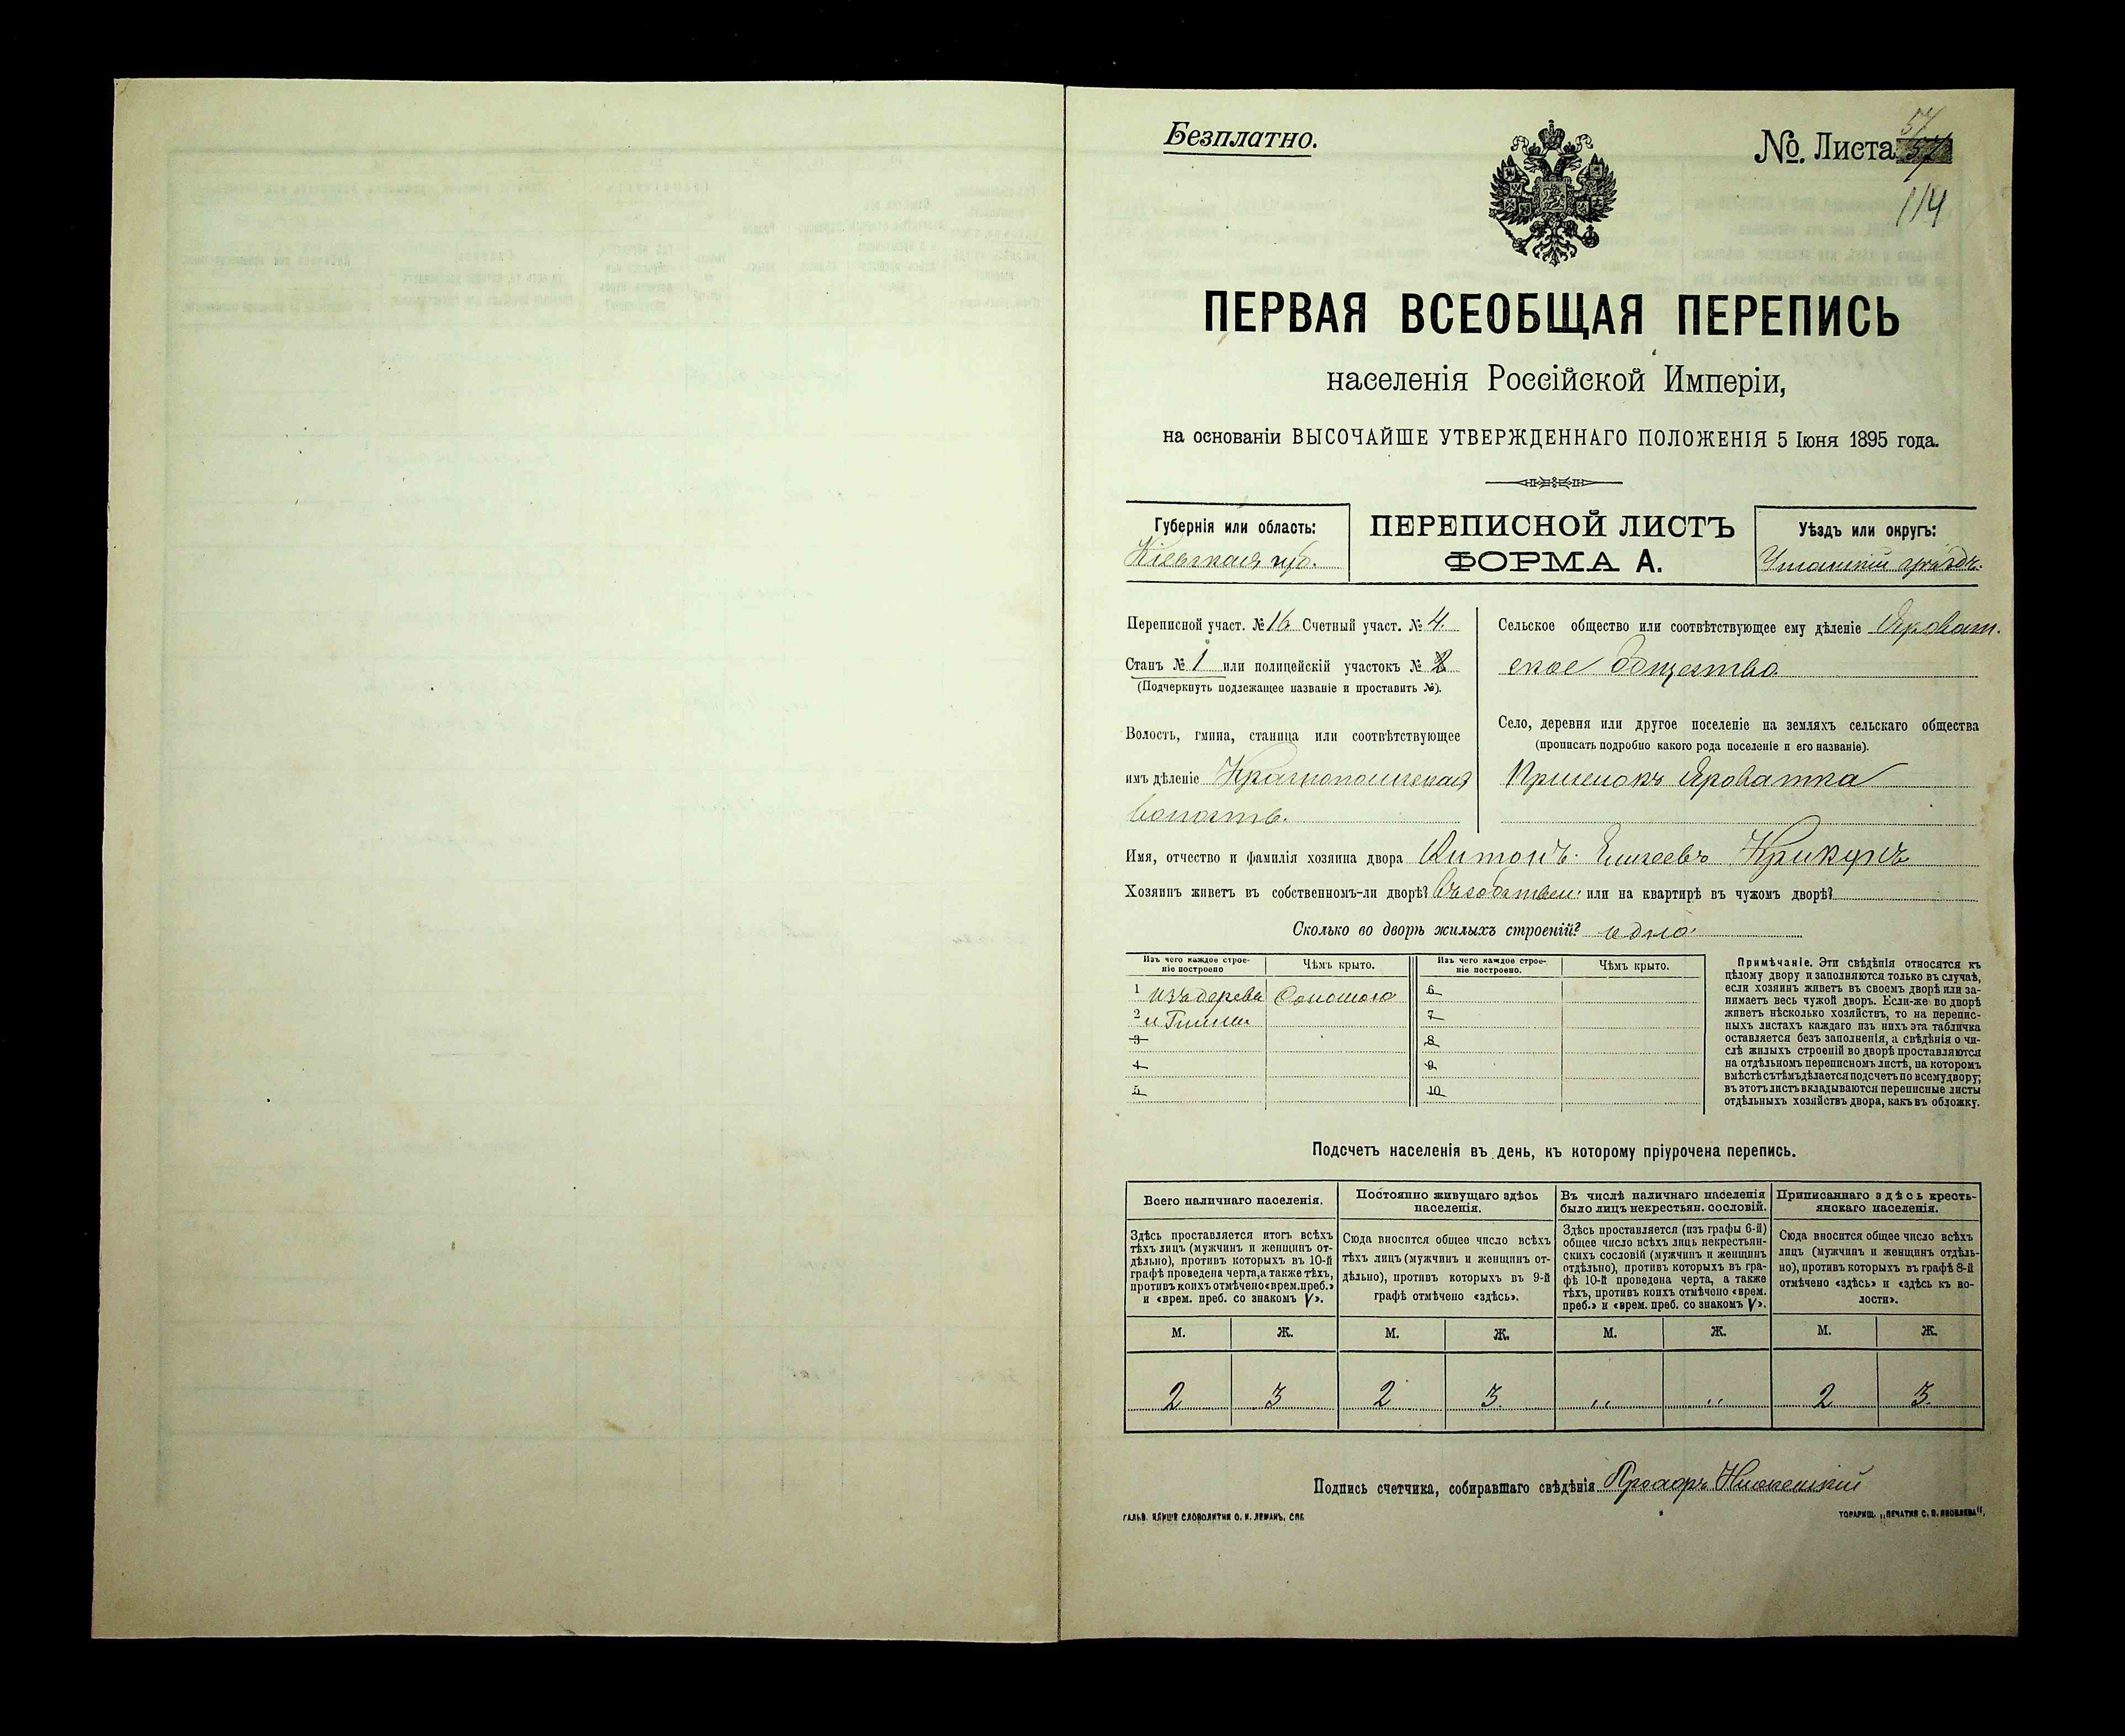 Безплатно.
№. Листа 57
57
114
ПЕРВАЯ ВСЕОБЩАЯ ПЕРЕПИСЬ
населенія Россійской Имперіи,
на основаніи ВЫСОЧАЙШЕ УТВЕРЖДЕННАГО ПОЛОЖЕНІЯ 5 Іюня 1895 года.
Губернія или область:
Кіевская губ.
ПЕРЕПИСНОЙ ЛИСТЪ
ФОРМА А.
Уѣздъ или округъ:
Уманскій уѣздъ.
Переписной участ. № 16 Счетный участ. № 4.
Станъ № 1 или полицейскій участокъ №
(Подчеркнуть подлежащее названіе и проставить №).
Волость, гмина, станица или соотвѣтствующее
имъ дѣленіе Краснопольская
волость.
Сельское общество или соотвѣтствующее ему дѣленіе Яроват.
ское общество
Село, деревня или другое поселеніе на земляхъ сельскаго общества
(прописать подробно какого рода поселеніе и его названіе).
Яроватка
Имя, отчество и фамилія хозяина двора Антонъ Елисеевъ Крикунъ
Хозяинъ живетъ въ собственномъ-ли дворѣ? Въ собствен. или на квартирѣ въ чужомъ дворѣ?
Сколько во дворѣ жилыхъ строеній? одно
Изъ чего каждое строе-
ніе построено
Чѣмъ крыто.
Изъ чего каждое строе-
ніе построено.
Чѣмъ крыто.
1 изъ дерева Соломою 6
2 и Глины 7
3 8
4 9
5 10
Примѣчаніе. Эти свѣдѣнія относятся къ
цѣлому двору и заполняются только въ случаѣ,
если хозяинъ живетъ въ своемъ дворѣ или за-
нимаетъ весь чужой дворъ. Если-же во дворѣ
живетъ нѣсколько хозяйствъ, то на перепис-
ныхъ листахъ каждаго изъ нихъ эта табличка
оставляется безъ заполненія, а свѣдѣнія о чи-
слѣ жилыхъ строеній во дворѣ проставляются
на отдѣльномъ переписномъ листѣ, на которомъ
вмѣстѣ съ тѣмъ дѣлается подсчетъ по всему двору;
въ этотъ листъ вкладываются переписные листы
отдѣльныхъ хозяйствъ двора, какъ въ обложку.
Подсчетъ населенія въ день, къ которому пріурочена перепись.
Всего наличнаго населенія.
Здѣсь проставляется итогъ всѣхъ
тѣхъ лицъ (мужчинъ и женщинъ от-
дѣльно), противъ которыхъ въ 10-й
графѣ проведена черта, а также тѣхъ,
противъ коихъ отмѣчено «врем. преб.»
и «врем. преб. со знакомъ V».
Постоянно живущаго здѣсь
населенія.
Сюда вносится общее число всѣхъ
тѣхъ лицъ (мужчинъ и женщинъ от-
дѣльно), противъ которыхъ въ 9-й
графѣ отмѣчено «здѣсь».
Въ числѣ наличнаго населенія
было лицъ некрестьян. сословій.
Здѣсь проставляется (изъ графы 6-й)
общее число всѣхъ лицъ некрестьян-
скихъ сословій (мужчинъ и женщинъ
отдѣльно), противъ которыхъ въ гра-
фѣ 10-й проведена черта, а также
тѣхъ, противъ коихъ отмѣчено «врем.
преб.» и «врем. преб. со знакомъ V».
Приписаннаго здѣсь кресть-
янскаго населенія.
Сюда вносится общее число всѣхъ
лицъ (мужчинъ и женщинъ отдѣль-
но), противъ которыхъ въ графѣ 8-й
отмѣчено «здѣсь» и «здѣсь къ во-
лости».
М. Ж. М. Ж. М. Ж. М. Ж.
2 3 2 3. " " 2 3.
Подпись счетчика, собиравшаго свѣдѣнія Прохоръ
ГАЛЬВ. КЛИШЕ СЛОВОЛИТНИ О. И. ЛЕМАНЪ, СПБ
ТОВАРИЩ. „ПЕЧАТНЯ С. П. ЯКОВЛЕВА“.